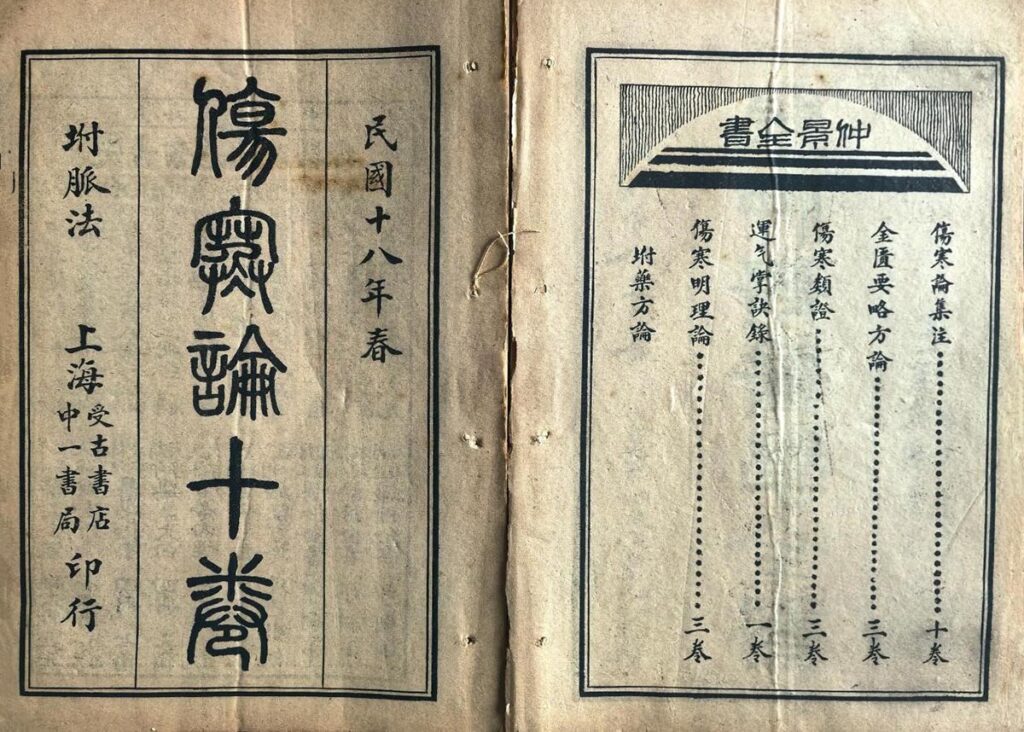 仲景全書
傷寒論集注………十卷
金匱要略方論………三卷
傷寒類證………三卷
運气掌訣錄………一卷
傷寒明理論………三卷
坿藥方論
民國十八年春
傷寒論十卷
坿脈法
上海
受古書店
中一書局
印行